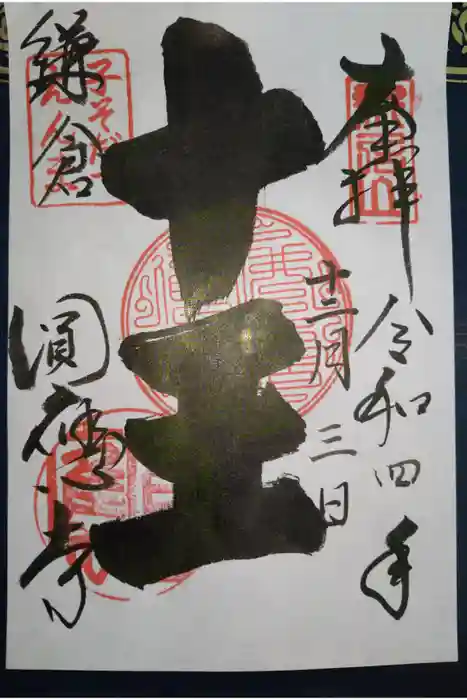 奉拝
令和四年
十二月三日
十王
鎌倉
圓應寺
子そだ